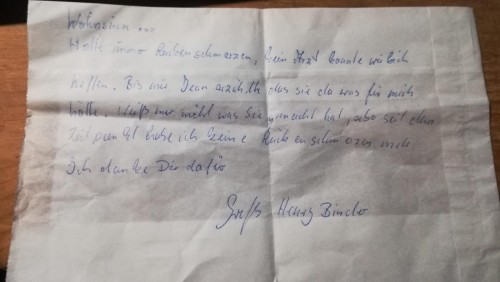 Wahnsinn ...
Hatte immer Rückenschmerzen, kein Arzt konnte wirklich
helfen. Bis mir Dean erzählte das sie da was für mich
hätte. Weiß nur nicht was Sie gemacht hat, aber seit dem
Zeitpunkt habe ich keine Rückenschmerzen mehr
Ich danke Dir dafür
Gruß Henry